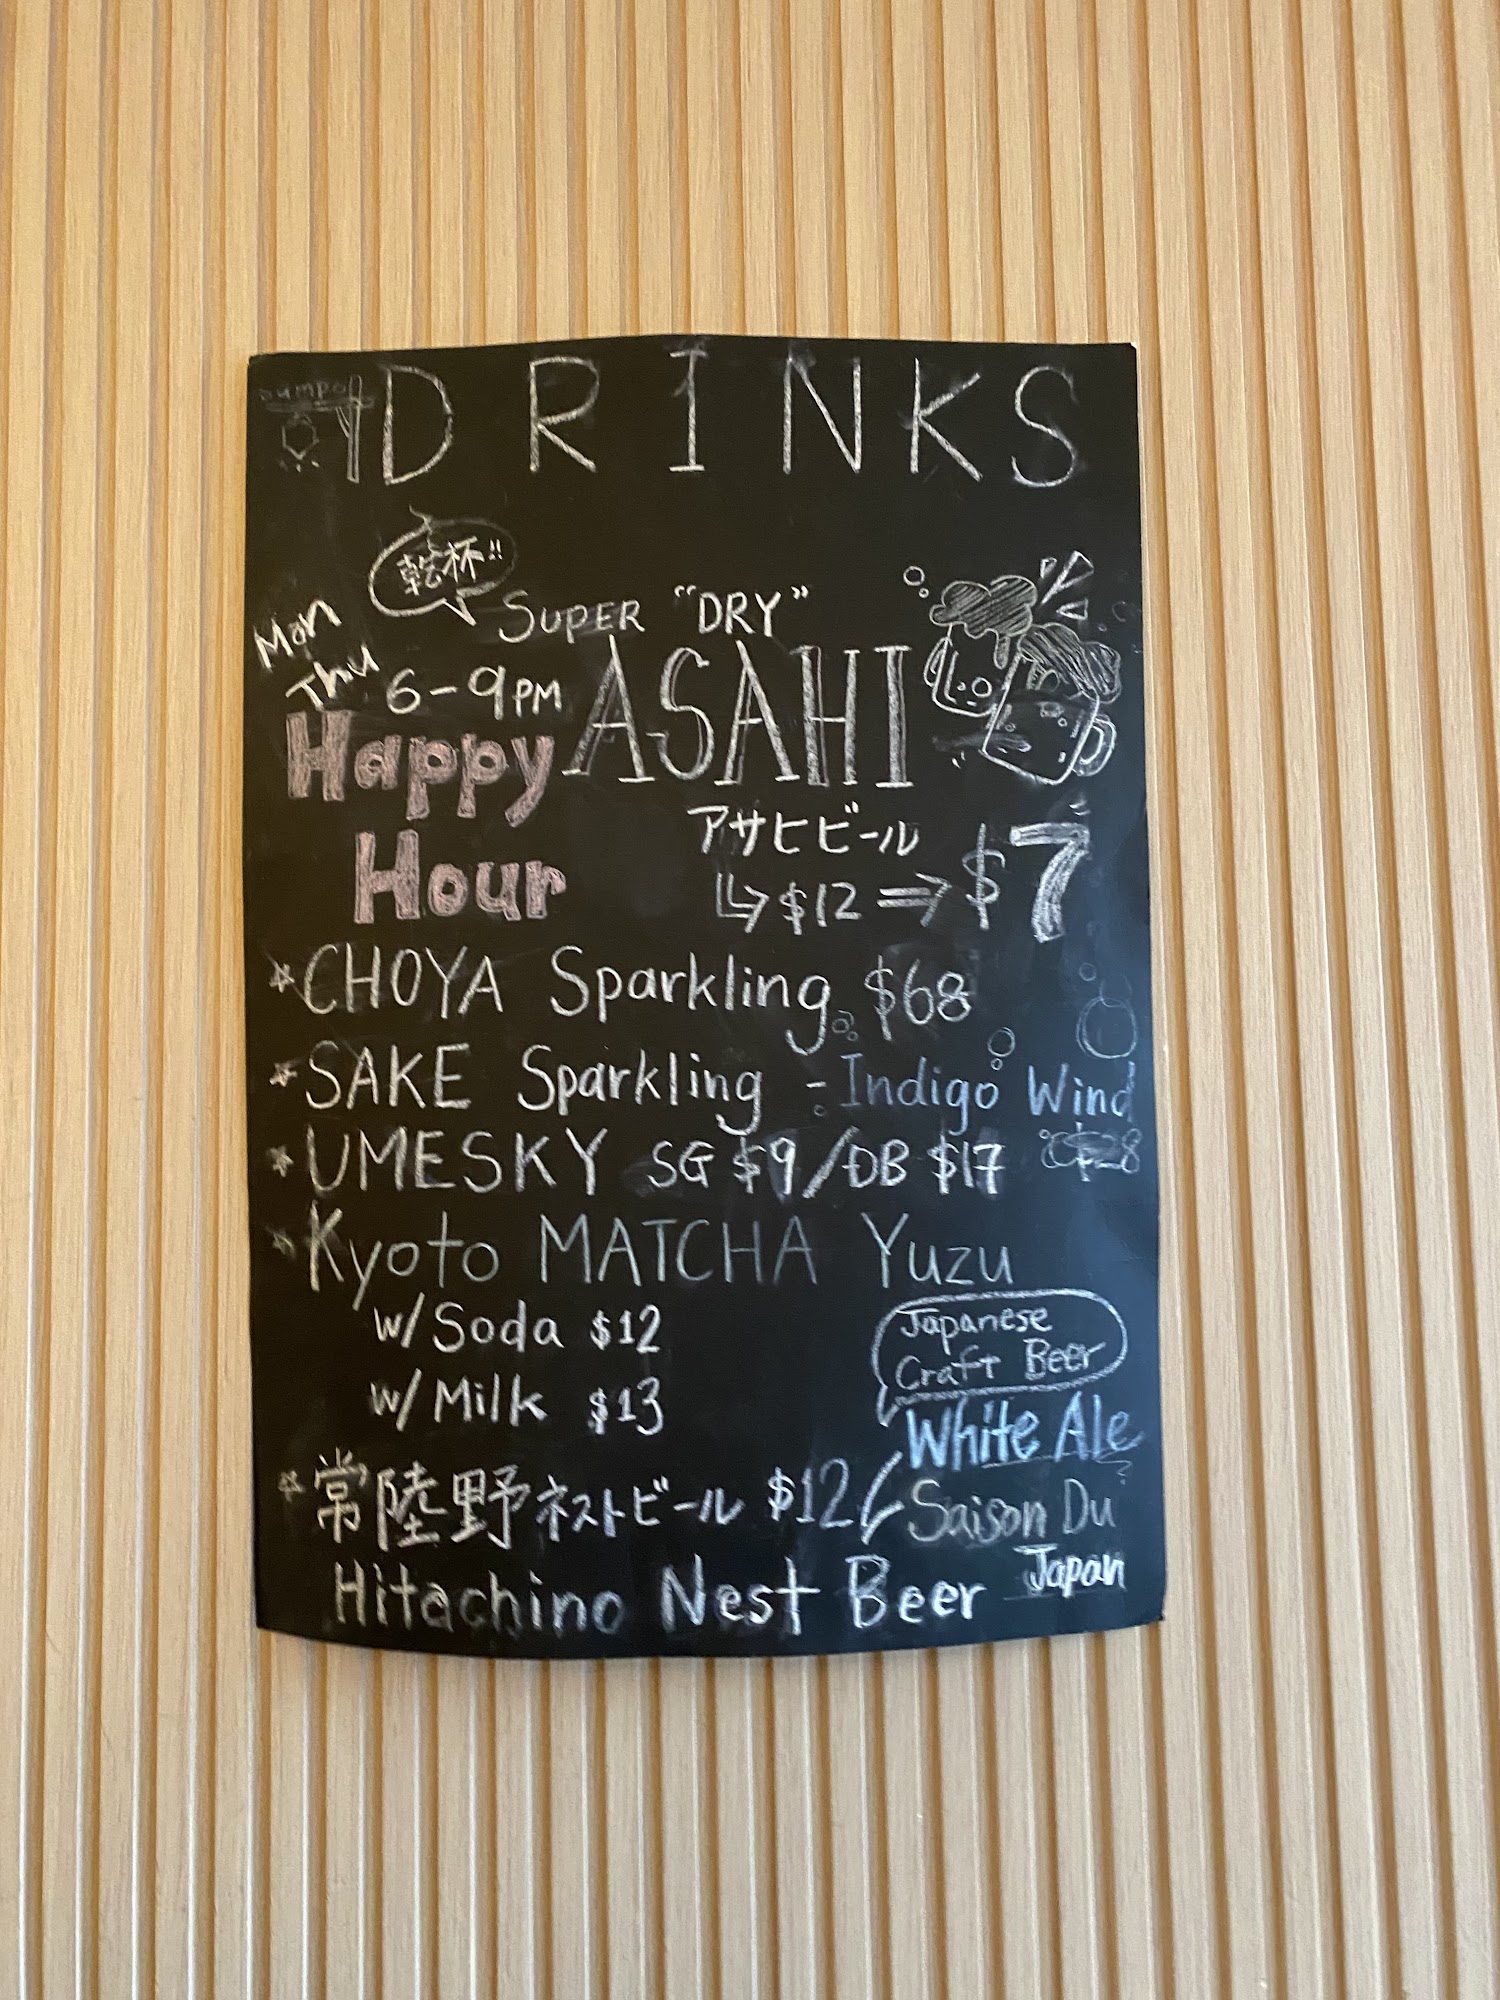 DRINKS
乾杯!!
Mon
Thu 6-9PM
Happy
Hour
SUPER "DRY"
ASAHI
アサヒビール
$12 ⇒ $7
*CHOYA Sparkling $68
*SAKE Sparkling - Indigo Wind
*UMESKY SG $9/DB $17
*Kyoto MATCHA Yuzu
w/Soda $12
w/Milk $13
*常陸野ネストビール $12
Hitachino Nest Beer
Japanese
Craft Beer
White Ale
Saison Du
Japan